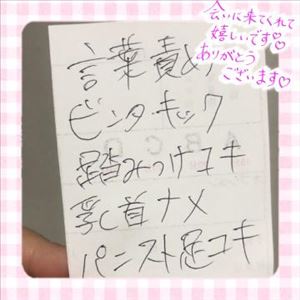 会いに来てくれて
嬉しいです♡
ありがとう
ございます♡
言葉責め
ビンタキック
踏みつけコキ
乳首ナメ
パンスト足コキ